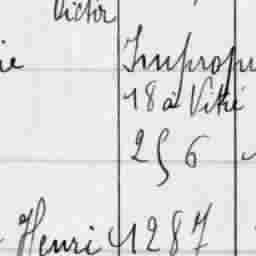 Victor
ie Impropr
18 à Vitré
256
Henri 1287